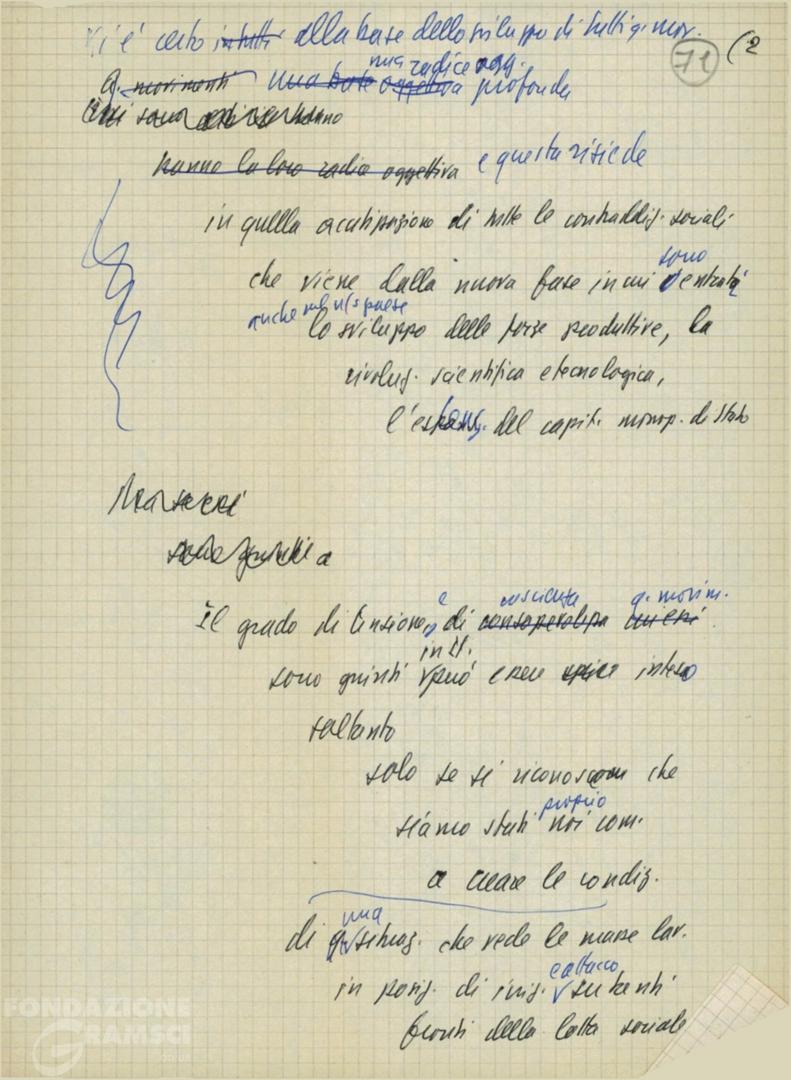 Vi è certo in tutti alla base dello sviluppo di tutti q. mov.
(2
71
una radice ogg.
q. movimenti una base oggettiva profonda
hanno la loro radice oggettiva e questa risiede
in quella acutizzazione di tutte le contraddiz. sociali
che viene dalla nuova fase in cui sono entrati
anche nel n/s paese
lo sviluppo delle forze produttive, la
rivoluz. scientifica e tecnologica,
l'espans. del capit. monop. di stato
Ma se essi
sono giunti a
Il grado di tensione, e di coscienza q. movim.
consapevolezza cui essi
int.
sono giunti può essere inteso
soltanto
solo se si riconosce che
siamo stati proprio noi com.
a creare le condiz.
di una situaz. che vede le masse lav.
in posiz. di iniz. e attacco su tanti
fronti della lotta sociale
FONDAZIONE
GRAMSCI